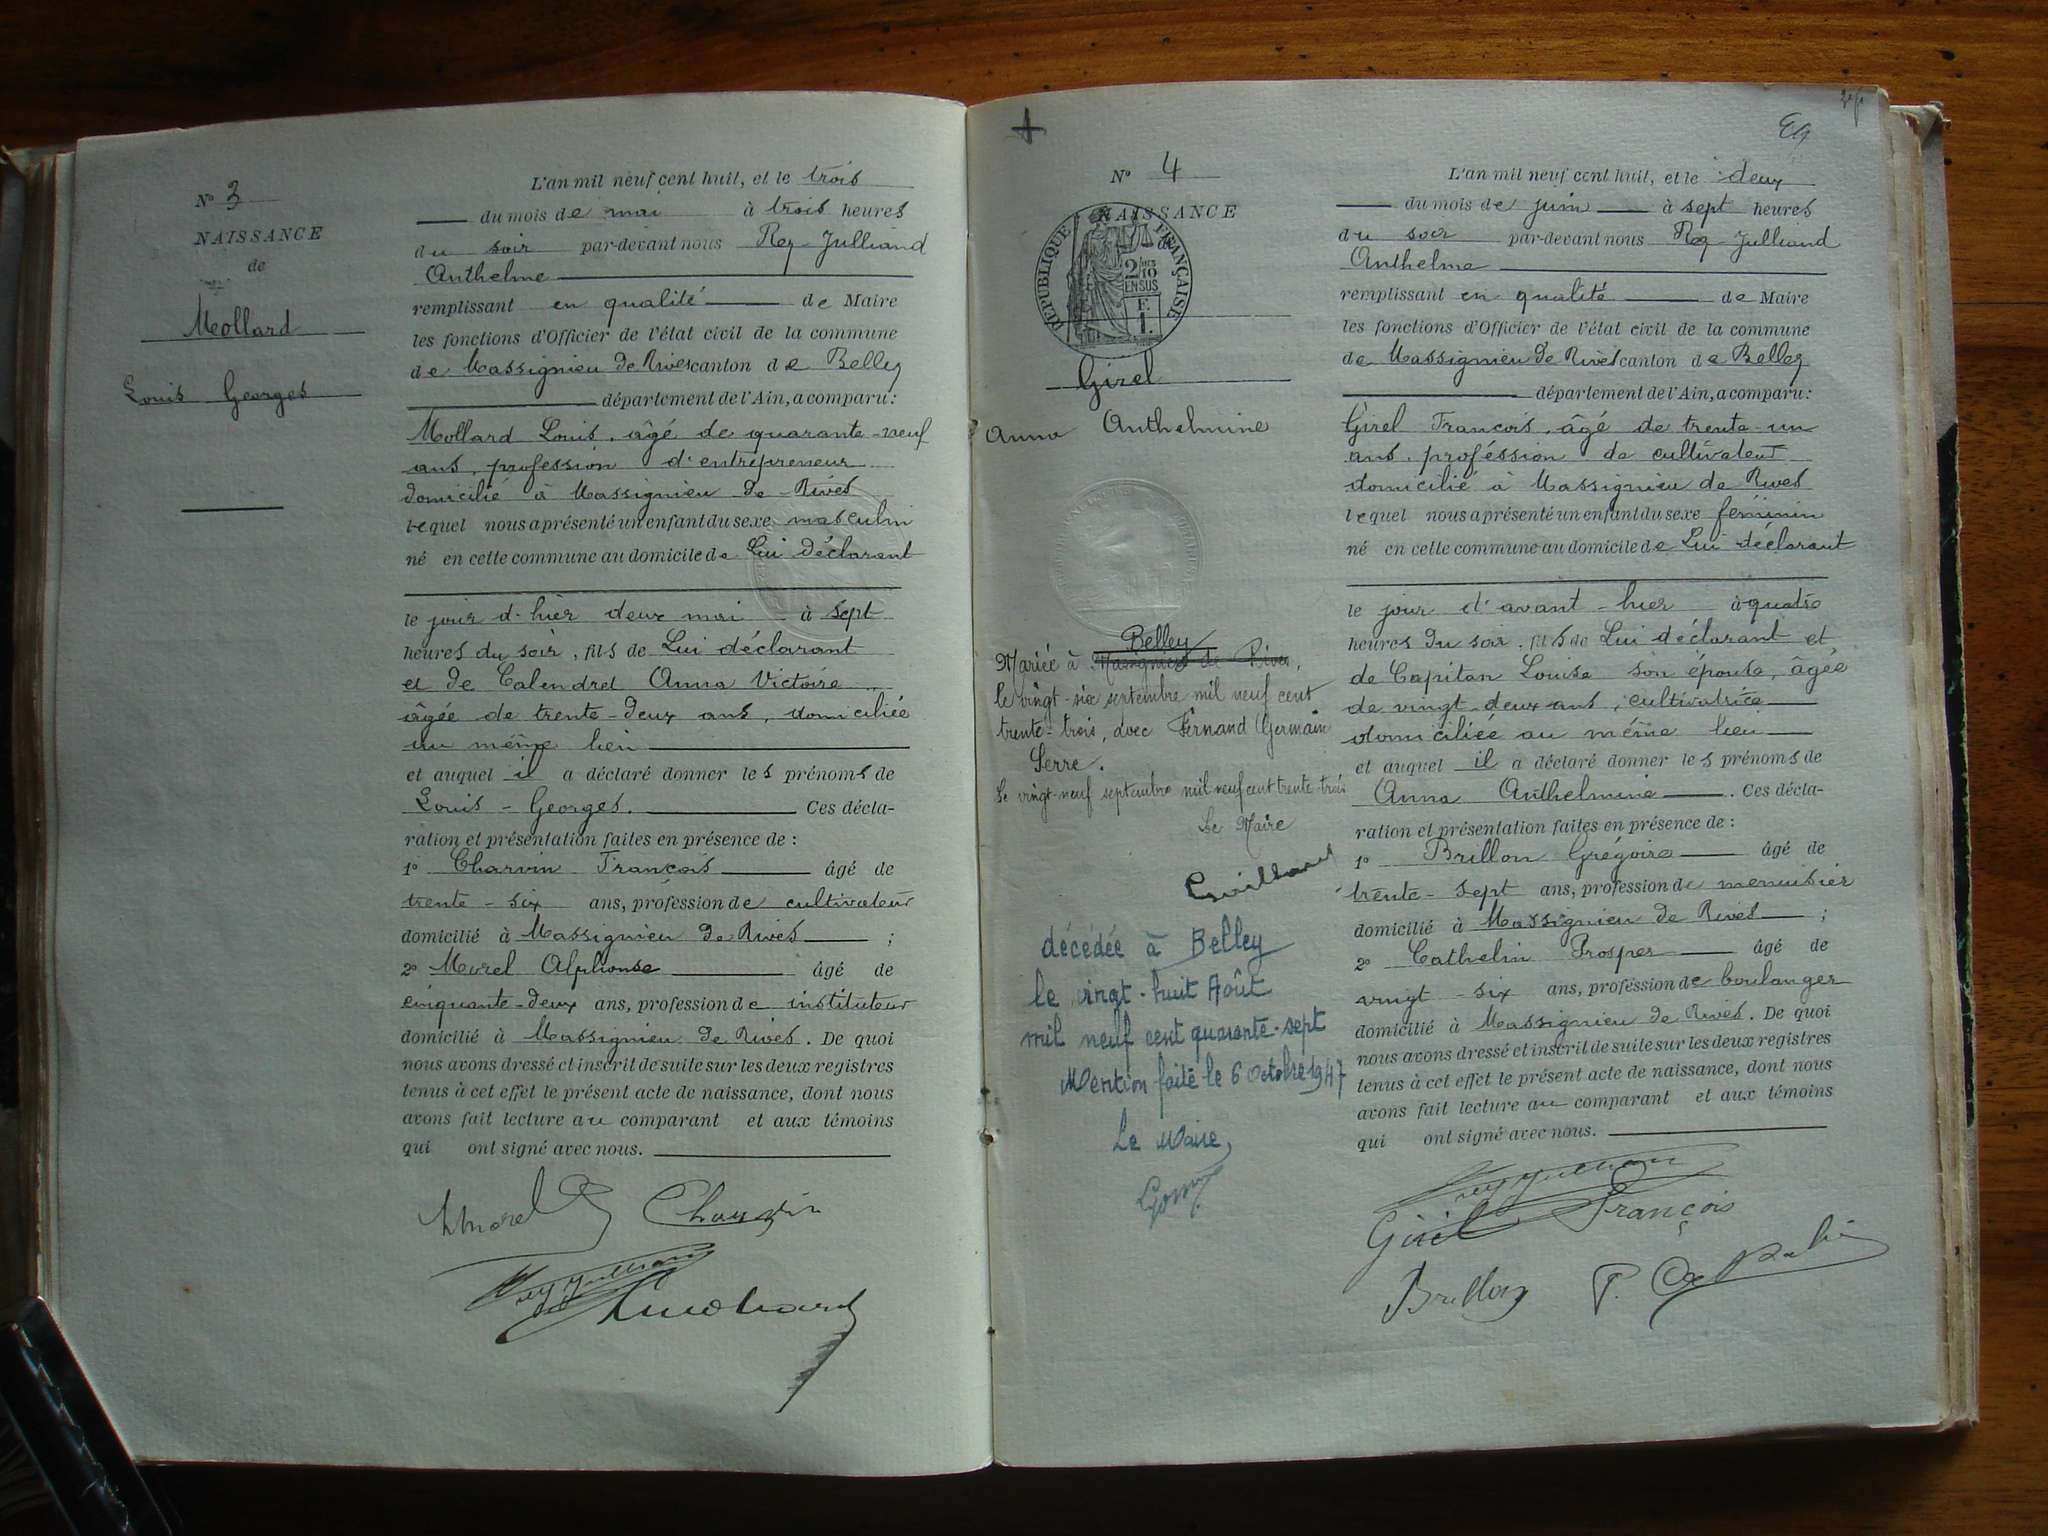 N° 3
NAISSANCE
de
Mollard
Louis Georges
L'an mil neuf cent huit, et le trois
du mois de mai à trois heures
du soir par-devant nous Rey-Julliand
Anthelme
remplissant en qualité de Maire
les fonctions d'Officier de l'état civil de la commune
de Massignieu de Rives canton de Belley
département de l'Ain, a comparu :
Mollard Louis, âgé de quarante-neuf
ans, profession d'entrepreneur
domicilié à Massignieu de Rives
lequel nous a présenté un enfant du sexe masculin
né en cette commune au domicile de Lui déclarant
le jour d'hier deux mai à sept
heures du soir, fils de Lui déclarant
et de Calendret Anna Victoire
âgée de trente-deux ans, domiciliée
au même lieu
et auquel il a déclaré donner les prénoms de
Louis-Georges. Ces décla-
ration et présentation faites en présence de :
1° Charvin François âgé de
trente-six ans, profession de cultivateur
domicilié à Massignieu de Rives ;
2° Morel Alphonse âgé de
cinquante-deux ans, profession de instituteur
domicilié à Massignieu de Rives. De quoi
nous avons dressé et inscrit de suite sur les deux registres
tenus à cet effet le présent acte de naissance, dont nous
avons fait lecture au comparant et aux témoins
qui ont signé avec nous.
AMorel Charvin
Rey Julliand
L Mollard
N° 4
NAISSANCE
de
RÉPUBLIQUE FRANÇAISE
2/10
EN SUS
Girel
Anna Anthelmine
Belley
Mariée à Massignieu de Rives,
le vingt-six septembre mil neuf cent
trente-trois, avec Fernand Germain
Serre.
Le vingt-neuf septembre mil neuf cent trente-trois
Le Maire
décédée à Belley
le vingt-huit Août
mil neuf cent quarante-sept
Mention faite le 6 Octobre 1947
Le Maire,
L'an mil neuf cent huit, et le deux
du mois de juin à sept heures
du soir par-devant nous Rey-Julliand
Anthelme
remplissant en qualité de Maire
les fonctions d'Officier de l'état civil de la commune
de Massignieu de Rives canton de Belley
département de l'Ain, a comparu :
Girel François, âgé de trente-un
ans, proféssion de cultivateur
domicilié à Massignieu de Rives
lequel nous a présenté un enfant du sexe féminin
né en cette commune au domicile de Lui déclarant
le jour d'avant-hier à quatre
heures du soir, fils de Lui déclarant et
de Capitan Louise son épouse, âgée
de vingt-deux ans, cultivatrice
domiciliée au même lieu
et auquel il a déclaré donner les prénoms de
Anna Anthelmine. Ces décla-
ration et présentation faites en présence de :
1° Brillon Grégoire âgé de
trente-sept ans, profession de menuisier
domicilié à Massignieu de Rives ;
2° Cathelin Prosper âgé de
vingt-six ans, profession de boulanger
domicilié à Massignieu de Rives. De quoi
nous avons dressé et inscrit de suite sur les deux registres
tenus à cet effet le présent acte de naissance, dont nous
avons fait lecture au comparant et aux témoins
qui ont signé avec nous.
Rey Julliand
Girel François
Brillon